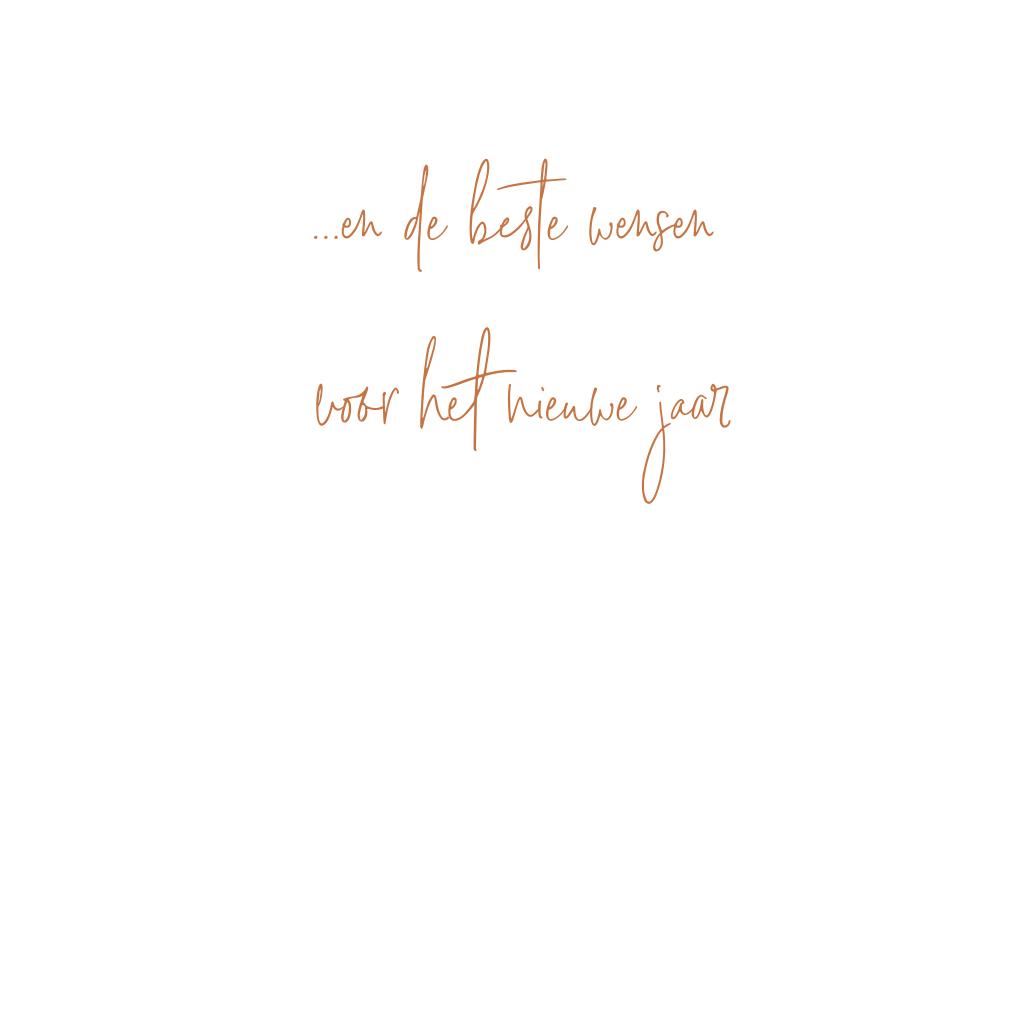 ...en de beste wensen
voor het nieuwe jaar